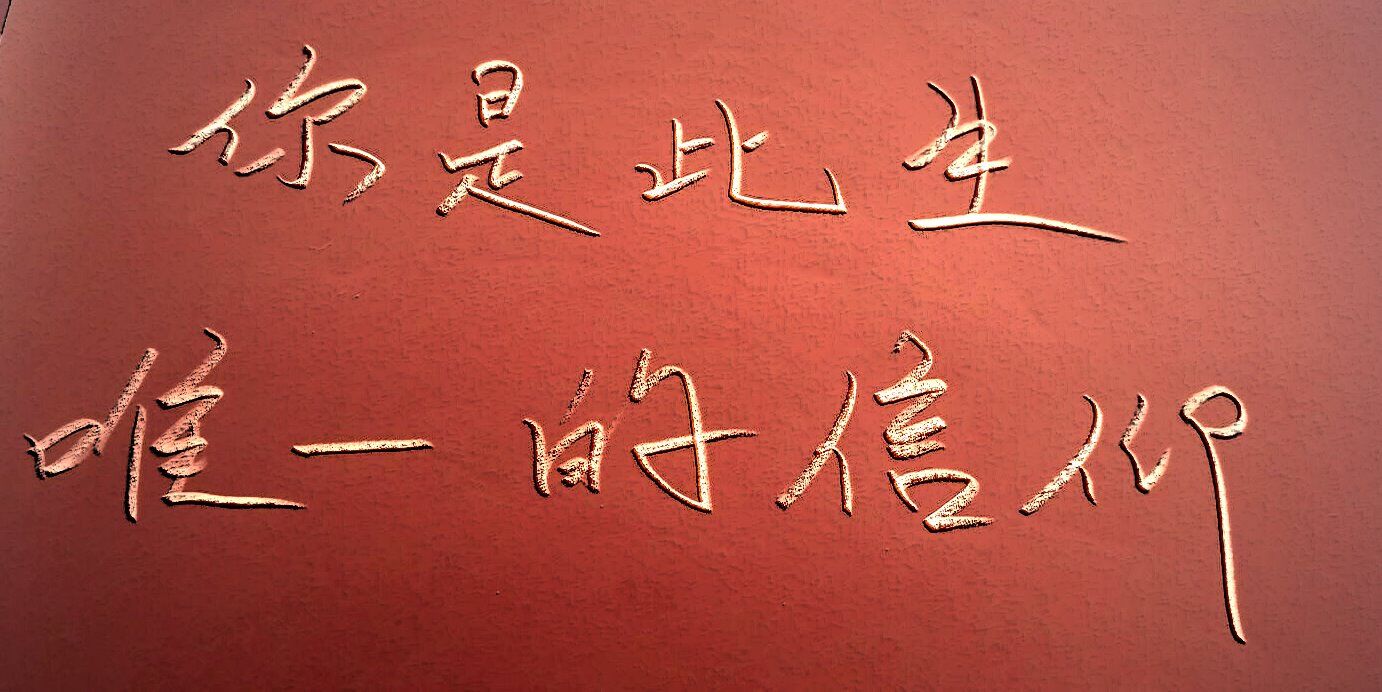 你是此生
唯一的信仰